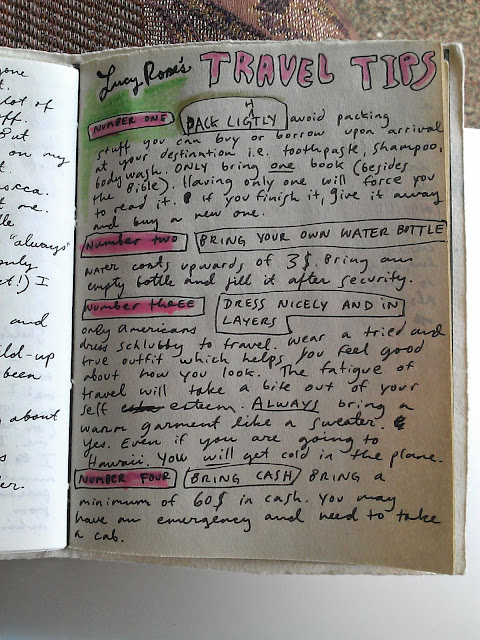 lot of
But
on my
me.
"always"
only
I
and
been
about
Lucy Rose's TRAVEL TIPS
NUMBER ONE PACK LIGHTLY avoid packing
stuff you can buy or borrow upon arrival
at your destination i.e. toothpaste, shampoo,
body wash. ONLY bring one book (besides
the Bible). Having only one will force you
to read it. If you finish it, give it away
and buy a new one.
Number two BRING YOUR OWN WATER BOTTLE
water costs upwards of 3$. Bring an
empty bottle and fill it after security.
Number three DRESS NICELY AND iN
LAYERS
only Americans
dress schlubby to travel. wear a tried and
true outfit which helps you feel good
about how you look. The fatigue of
travel will take a bite out of your
self esteem. ALWAYS bring a
warm garment like a sweater.
Yes. Even if you are going to
Hawaii. You will get cold in the plane.
NUMBER FOUR BRING CASH BRING a
minimum of 60$ in cash. You may
have an emergency and need to take
a cab.